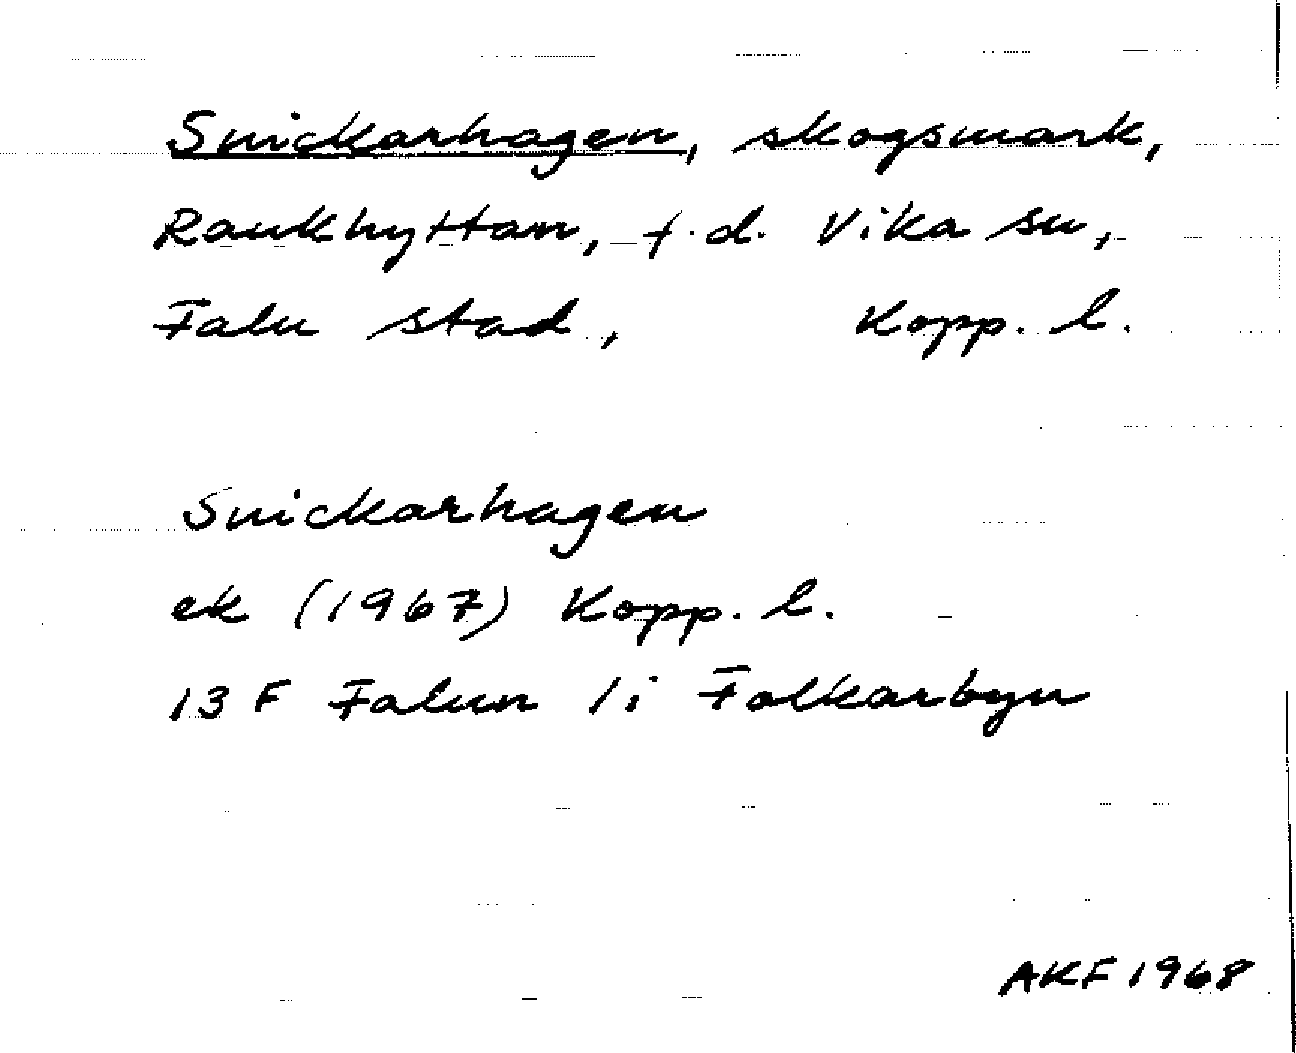 Snickarhagen, skogsmark,
Rankhyttan, f.d. Vika sn,
Falu stad, Kopp. l.
Snickarhagen
ek (1967) Kopp. l.
13 F Falun 1i Folkarbyn
AKF 1968